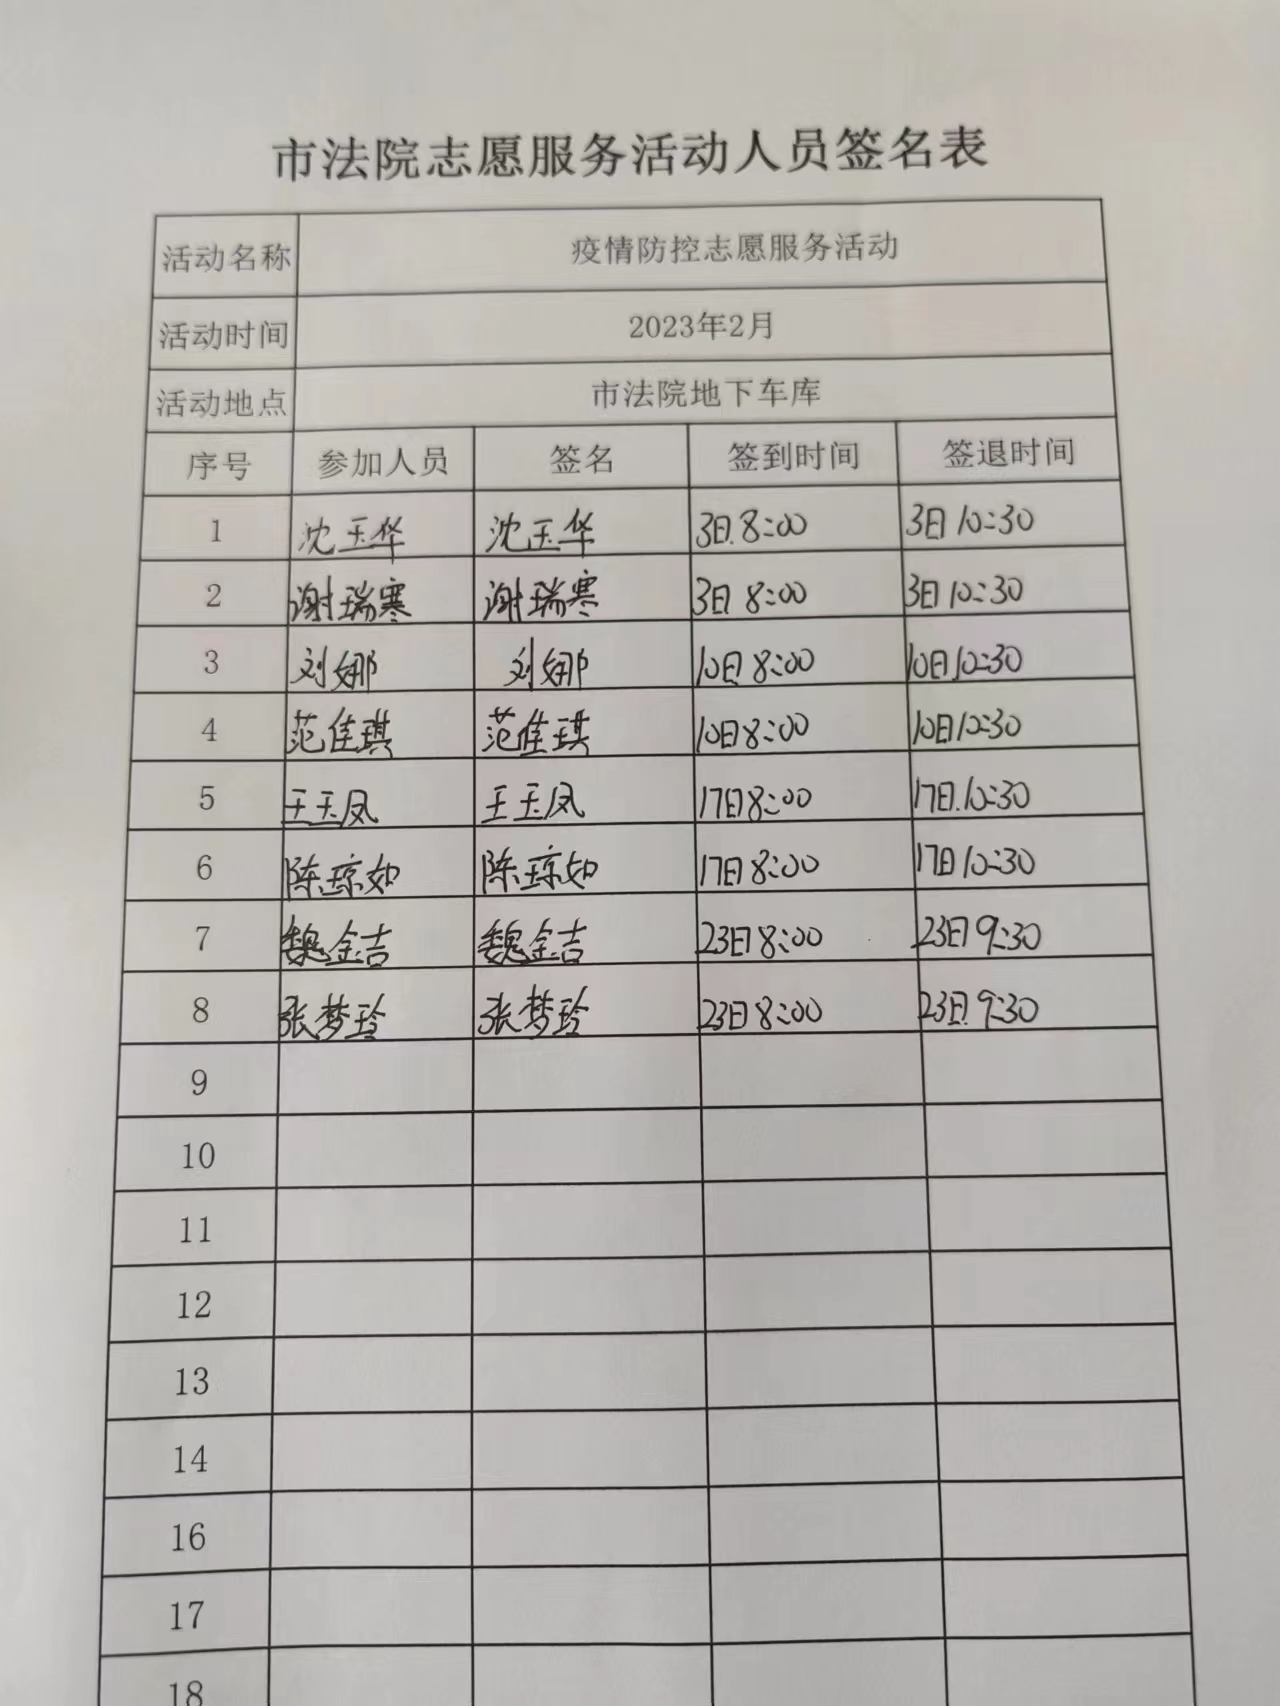 市法院志愿服务活动人员签名表
活动名称 疫情防控志愿服务活动
活动时间 2023年2月
活动地点 市法院地下车库
序号 参加人员 签名 签到时间 签退时间
1 沈玉华 沈玉华 3日.8:00 3日10:30
2 谢瑞寒 谢瑞寒 3日8:00 3日10:30
3 刘娜 刘娜 10日8:00 10日10:30
4 范佳琪 范佳琪 10日8:00 10日10:30
5 王玉凤 王玉凤 17日8:00 17日.10:30
6 陈琼如 陈琼如 17日8:00 17日10:30
7 魏金吉 魏金吉 23日8:00 23日9:30
8 张梦玲 张梦玲 23日8:00 23日.9:30
9
10
11
12
13
14
16
17
18